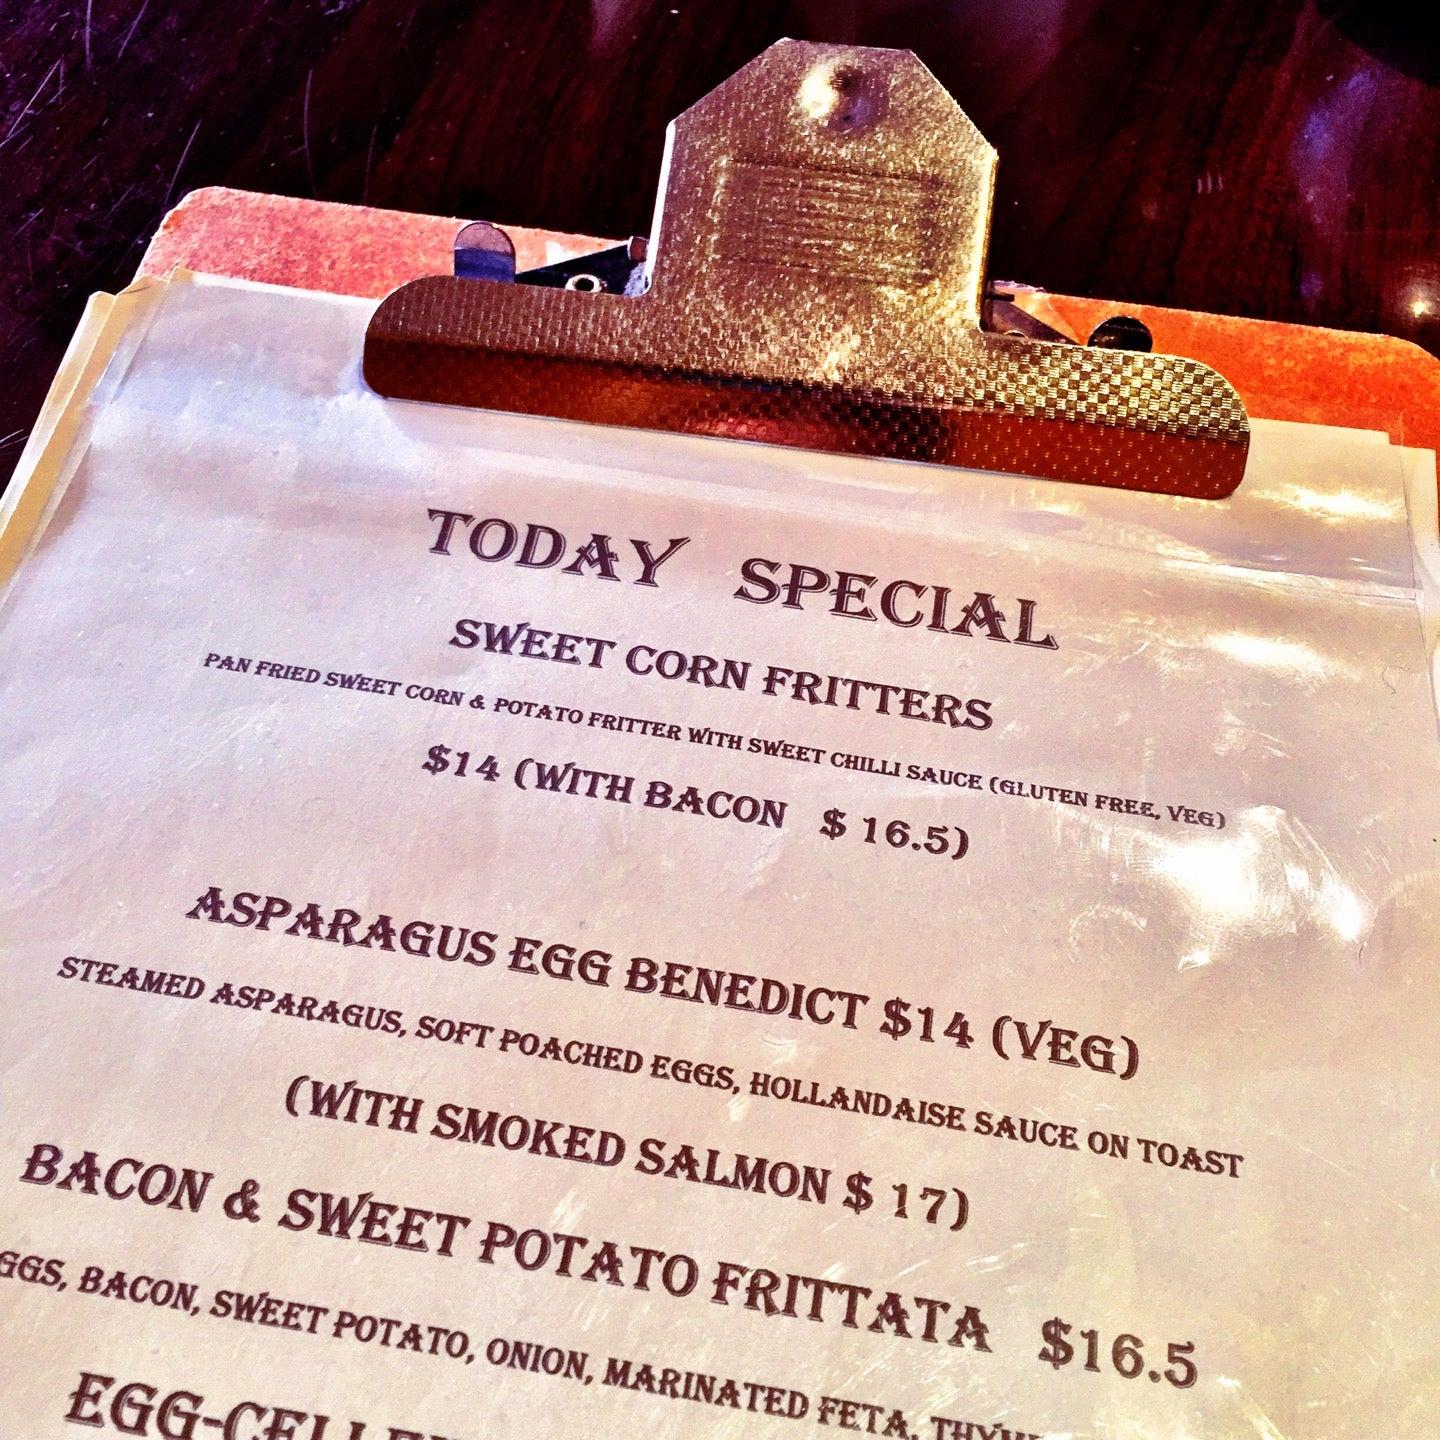 TODAY SPECIAL
SWEET CORN FRITTERS
PAN FRIED SWEET CORN & POTATO FRITTER WITH SWEET CHILLI SAUCE (GLUTEN FREE, VEG)
$14 (WITH BACON $ 16.5)
ASPARAGUS EGG BENEDICT $14 (VEG)
STEAMED ASPARAGUS, SOFT POACHED EGGS, HOLLANDAISE SAUCE ON TOAST
(WITH SMOKED SALMON $ 17)
BACON & SWEET POTATO FRITTATA $16.5
BACON, SWEET POTATO, ONION, MARINATED FETA,